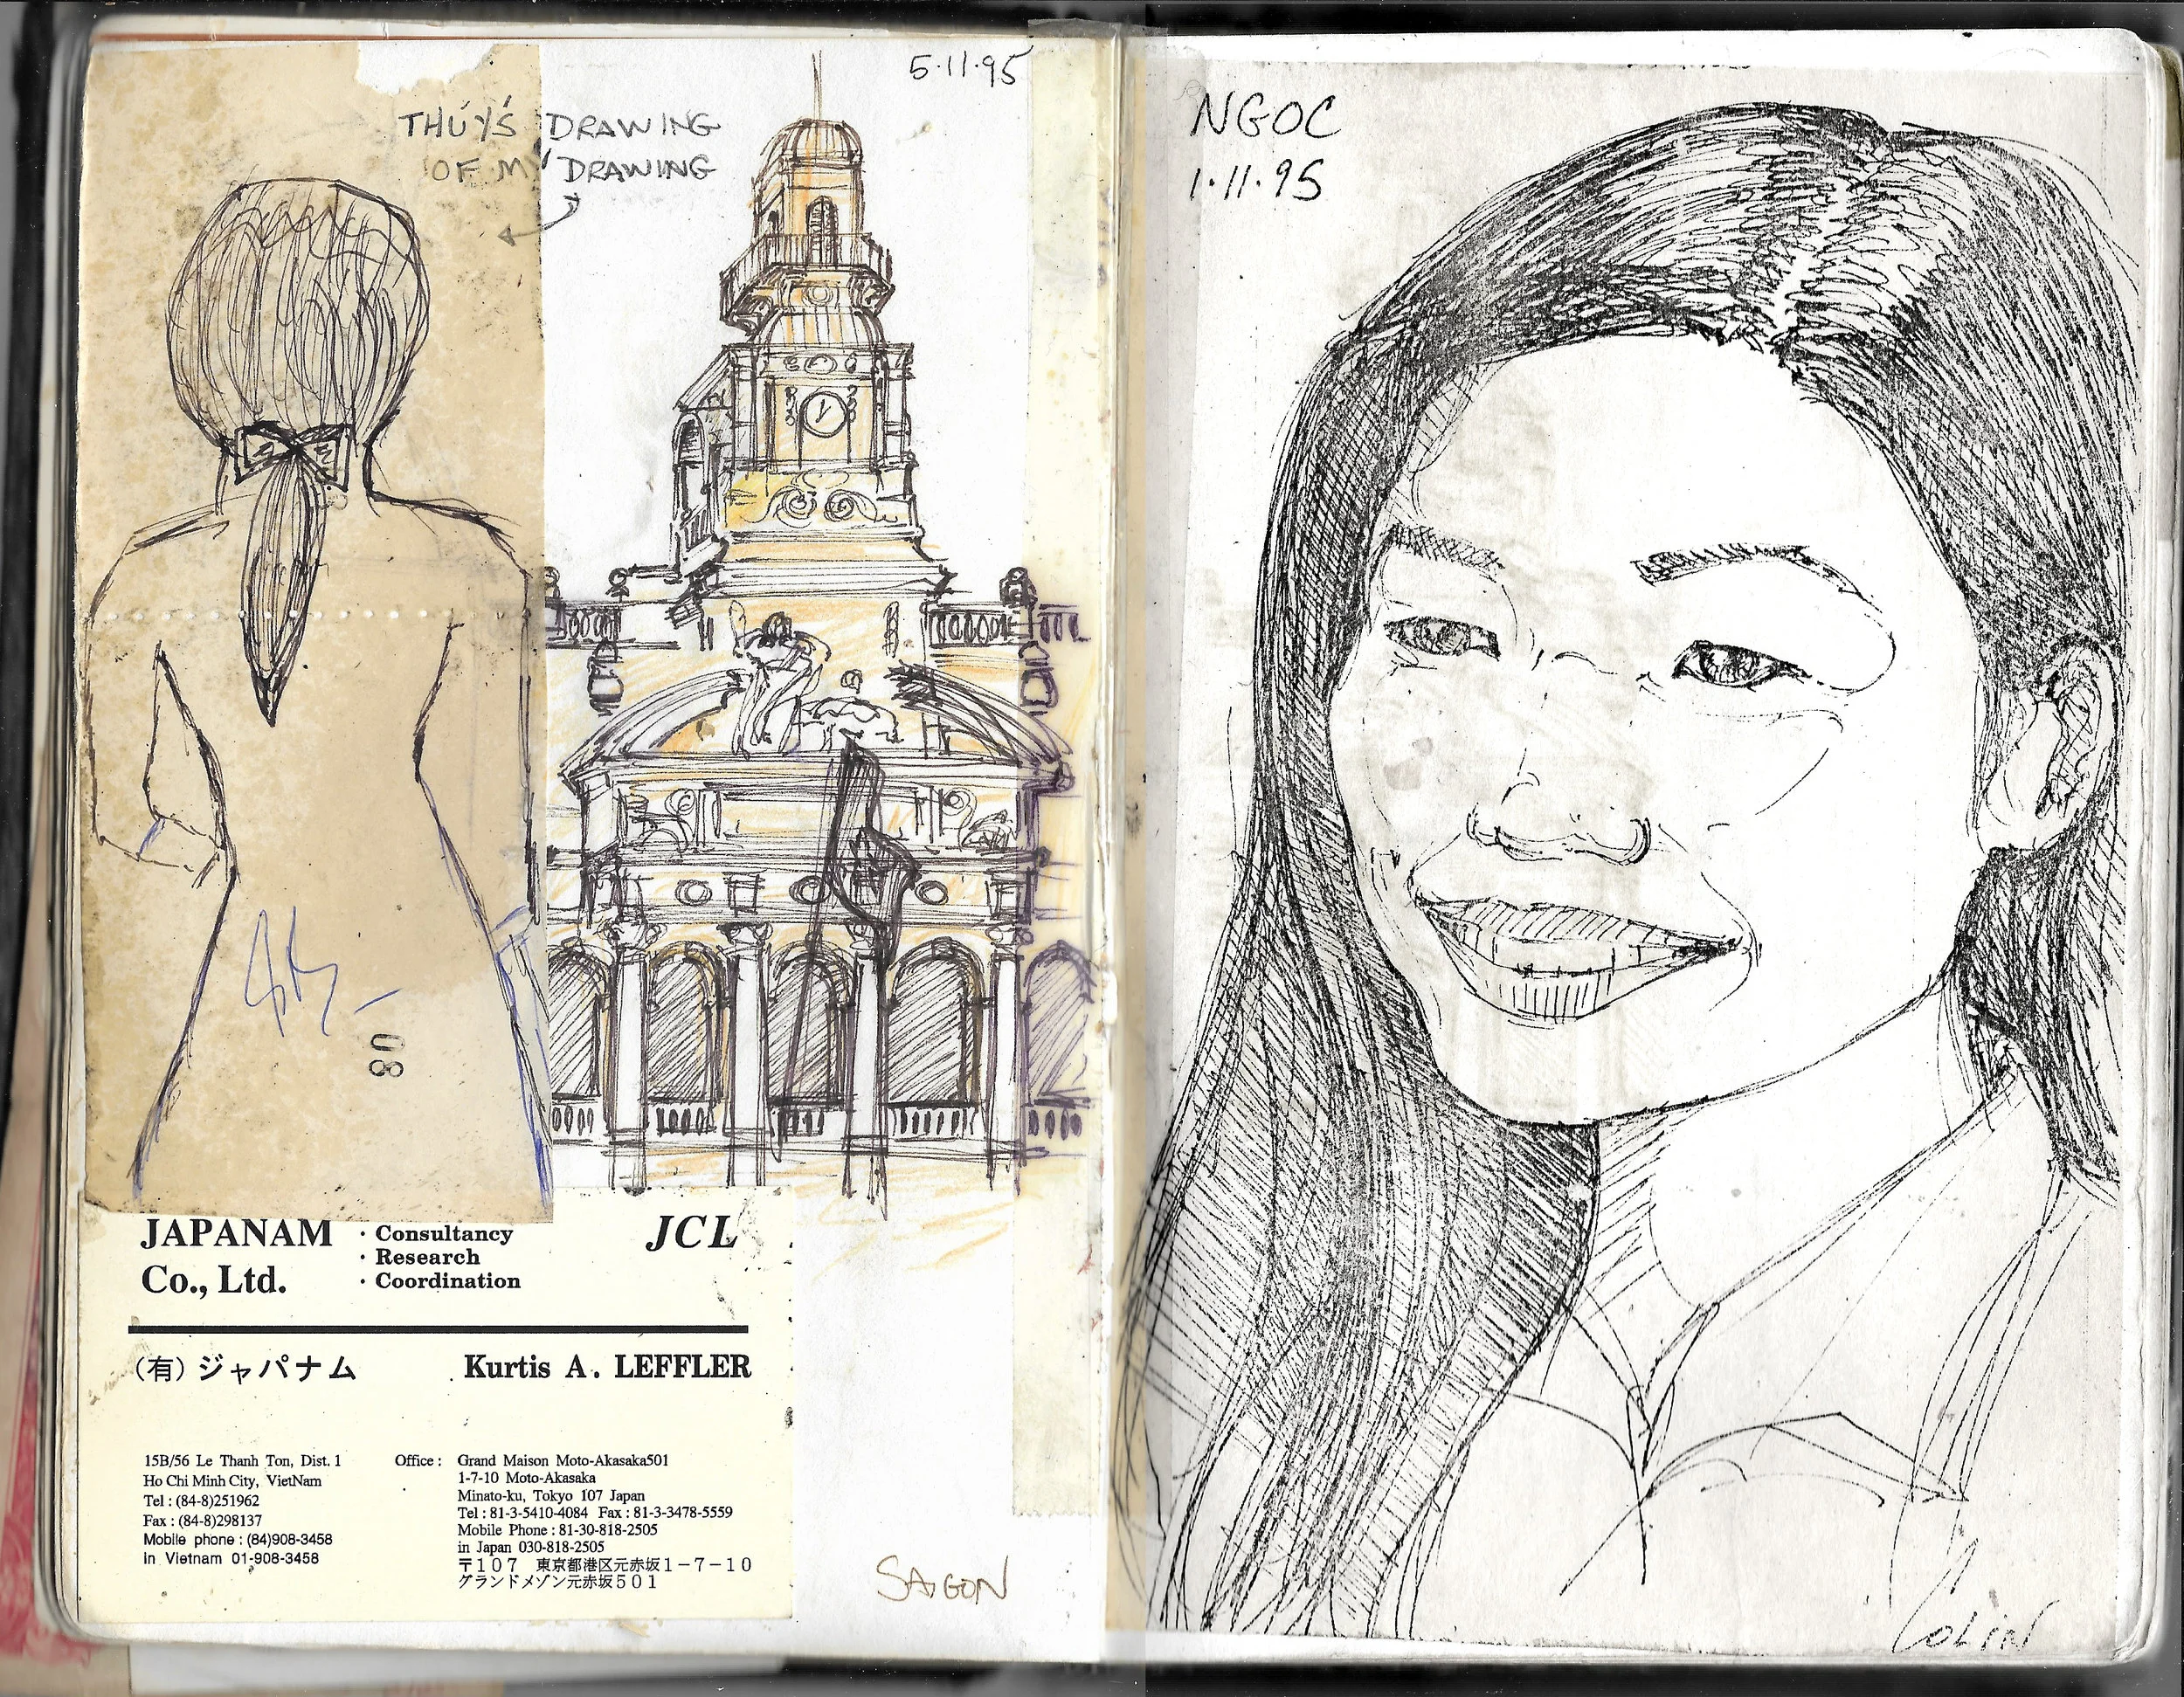 5·11·95
THÚY'S DRAWING
OF MY DRAWING
80
JAPANAM
Co., Ltd.
· Consultancy
· Research
· Coordination
JCL
(有)ジャパナム
Kurtis A. LEFFLER
15B/56 Le Thanh Ton, Dist. 1
Ho Chi Minh City, VietNam
Tel : (84-8)251962
Fax : (84-8)298137
Mobile phone : (84)908-3458
in Vietnam 01-908-3458
Office : Grand Maison Moto-Akasaka501
1-7-10 Moto-Akasaka
Minato-ku, Tokyo 107 Japan
Tel : 81-3-5410-4084 Fax : 81-3-3478-5559
Mobile Phone : 81-30-818-2505
in Japan 030-818-2505
〒107 東京都港区元赤坂1-7-10
グランドメゾン元赤坂501
SAIGON
NGOC
1·11·95
COLIN